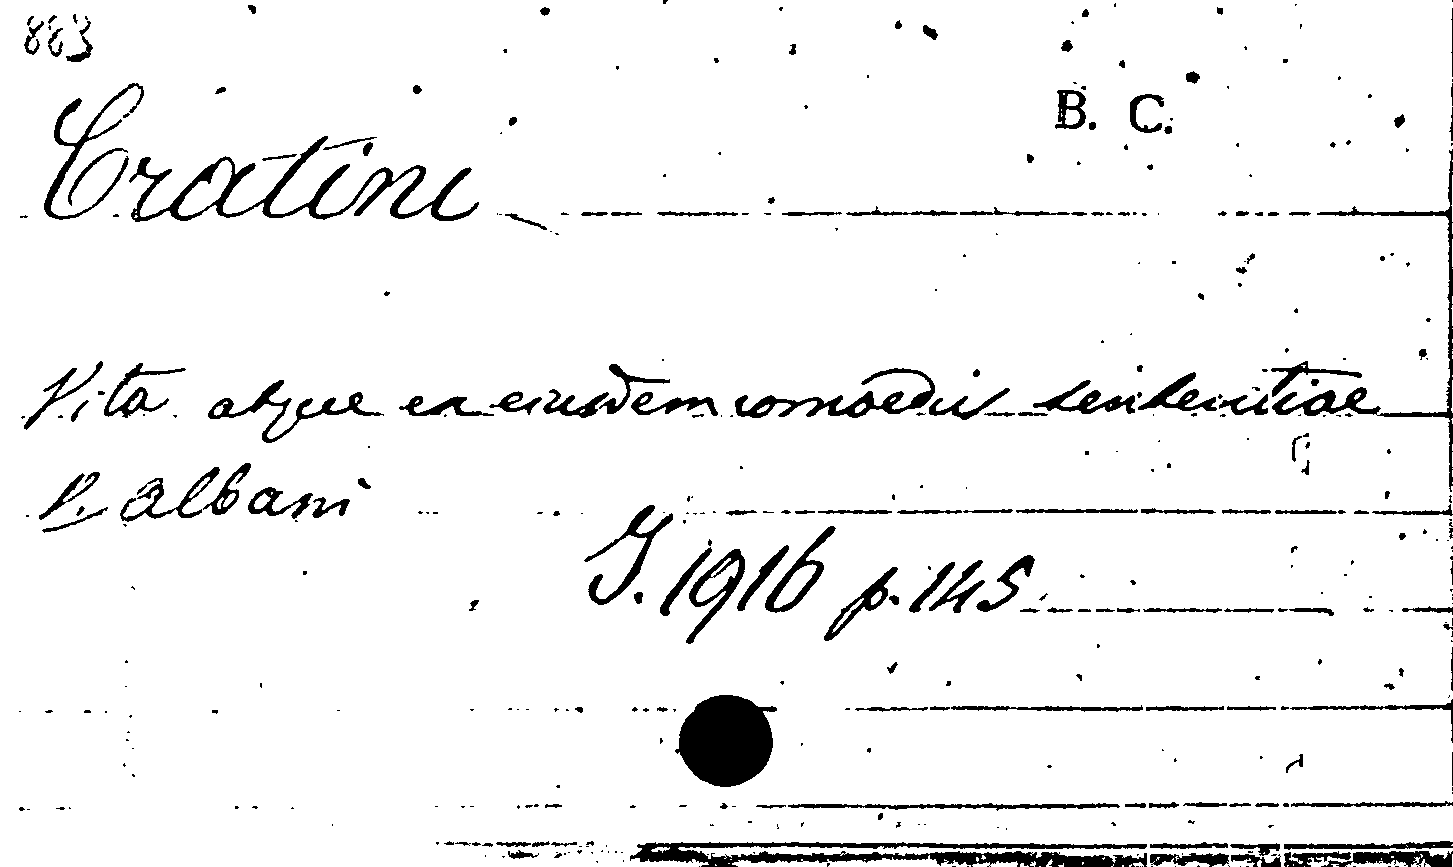 883
B. C.
Cratini
Vita atque ex eiusdem comoediis sententiae
P. Albani
J. 1916 p. 145